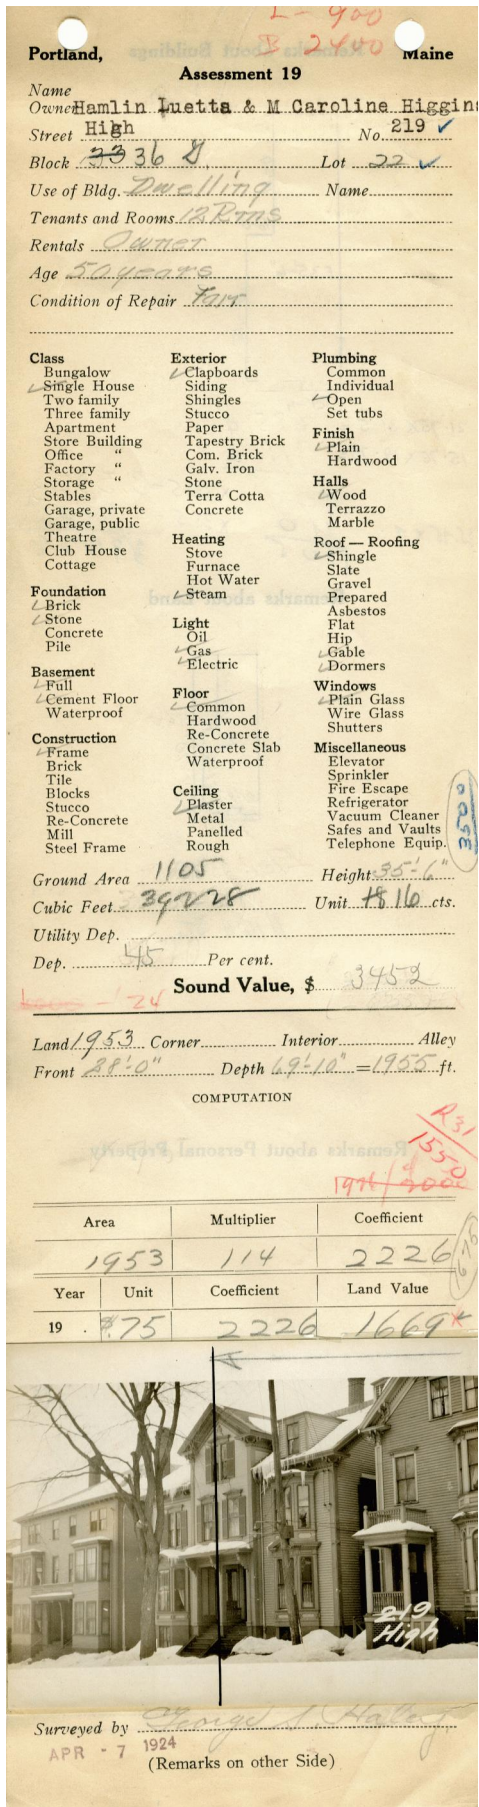 L - 900
B 2400
Portland, Maine
Assessment 19
Name
Owner Hamlin Luetta & M Caroline Higgins
Street High No. 219 ✓
Block 33 36 G. Lot 22 ✓
Use of Bldg. Dwelling Name
Tenants and Rooms 12 Rms
Rentals Owner
Age 50 years
Condition of Repair Fair
Class
✓ Bungalow
✓ Single House
Two family
Three family
Apartment
Store Building
Office "
Factory "
Storage "
Stables
Garage, private
Garage, public
Theatre
Club House
Cottage
Foundation
✓ Brick
✓ Stone
Concrete
Pile
Basement
✓ Full
✓ Cement Floor
Waterproof
Construction
✓ Frame
Brick
Tile
Blocks
Stucco
Re-Concrete
Mill
Steel Frame
Exterior
✓ Clapboards
Siding
Shingles
Stucco
Paper
Tapestry Brick
Com. Brick
Galv. Iron
Stone
Terra Cotta
Concrete
Heating
Stove
Furnace
Hot Water
✓ Steam
Light
Oil
✓ Gas
✓ Electric
Floor
✓ Common
Hardwood
Re-Concrete
Concrete Slab
Waterproof
Ceiling
✓ Plaster
Metal
Panelled
Rough
Plumbing
Common
Individual
✓ Open
Set tubs
Finish
✓ Plain
Hardwood
Halls
✓ Wood
Terrazzo
Marble
Roof — Roofing
✓ Shingle
Slate
Gravel
Prepared
Asbestos
Flat
Hip
✓ Gable
✓ Dormers
Windows
✓ Plain Glass
Wire Glass
Shutters
Miscellaneous
Elevator
Sprinkler
Fire Escape
Refrigerator
Vacuum Cleaner
Safes and Vaults
Telephone Equip.
3250
Ground Area 1105 Height 35'-6"
Cubic Feet 39228 Unit 18 16 cts.
Utility Dep.
Dep. 45 Per cent.
Sound Value, $ 3452
'24
Land 1953 Corner Interior Alley
Front 28'-0" Depth 69'-10" = 1955 ft.
COMPUTATION
R31
1550
Area Multiplier Coefficient
1953 114 2226
Year Unit Coefficient Land Value
19 . $.75 2226 1669 x
1675
219
High
Surveyed by George S. Haley
APR - 7 1924
(Remarks on other Side)